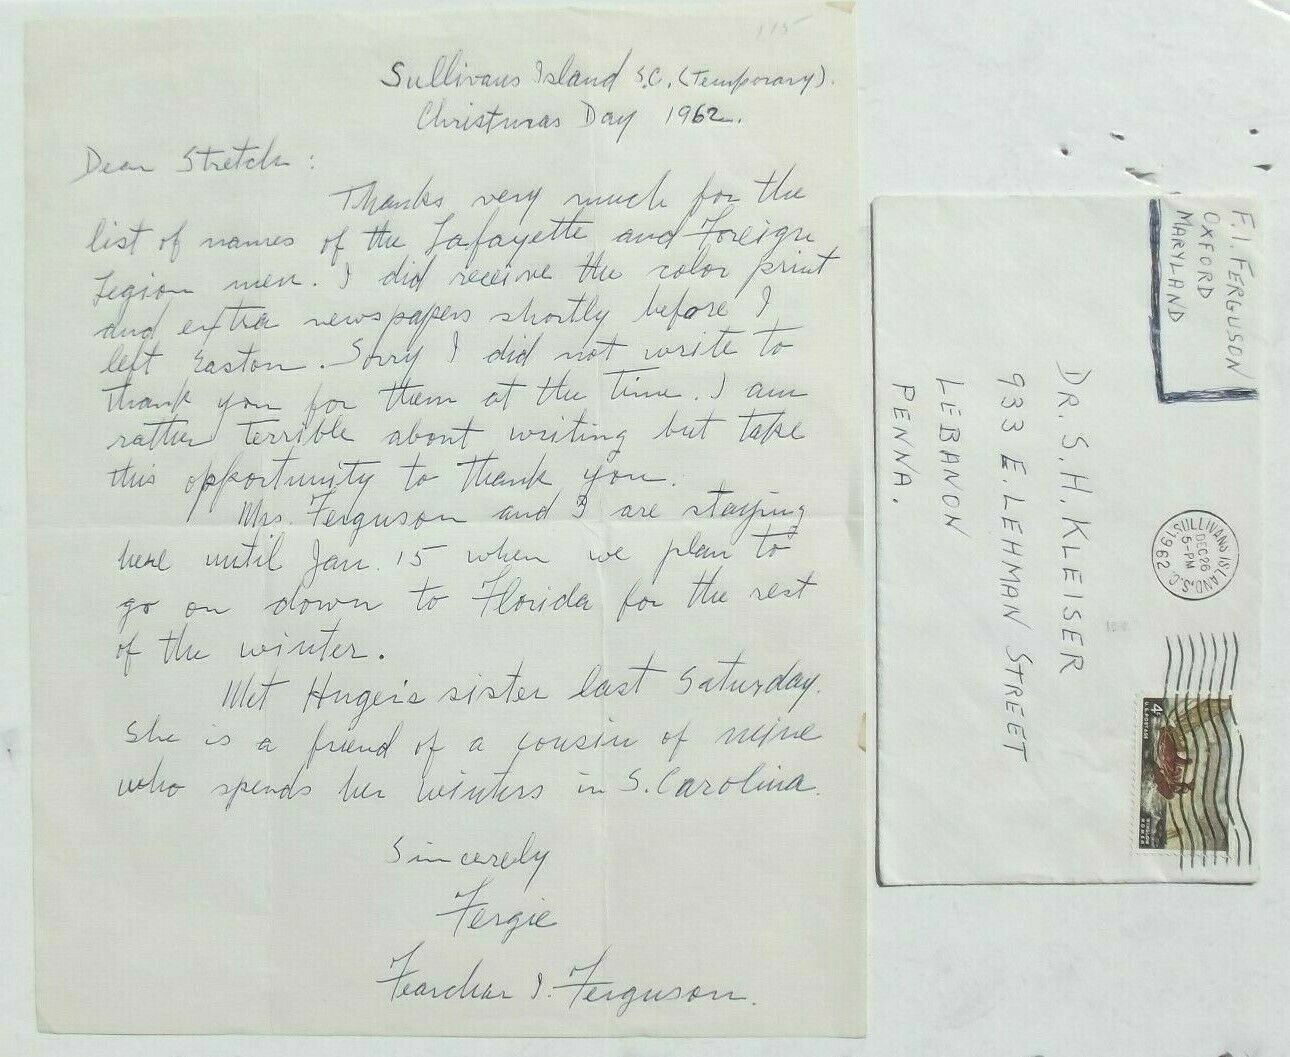 115
Sullivans Island S.C. (Temporary).
Christmas Day 1962.
Dear Stretch:
Thanks very much for the
list of names of the Lafayette and Foreign
Legion men. I did receive the color print
and extra newspapers shortly before I
left Easton. Sorry I did not write to
thank you for them at the time. I am
rather terrible about writing but take
this opportunity to thank you.
Mrs. Ferguson and I are staying
here until Jan. 15 when we plan to
go on down to Florida for the rest
of the winter.
Met Huger's sister last Saturday.
She is a friend of a cousin of mine
who spends her winters in S. Carolina.
Sincerely
Fergie
Fearchar I. Ferguson.
F. I. FERGUSON
OXFORD
MARYLAND
DR. S. H. KLEISER
933 E. LEHMAN STREET
LEBANON
PENNA.
SULLIVANS ISLAND, S.C.
DEC 26
5-PM
1962
4¢
U.S. POSTAGE
WINSLOW
HOMER